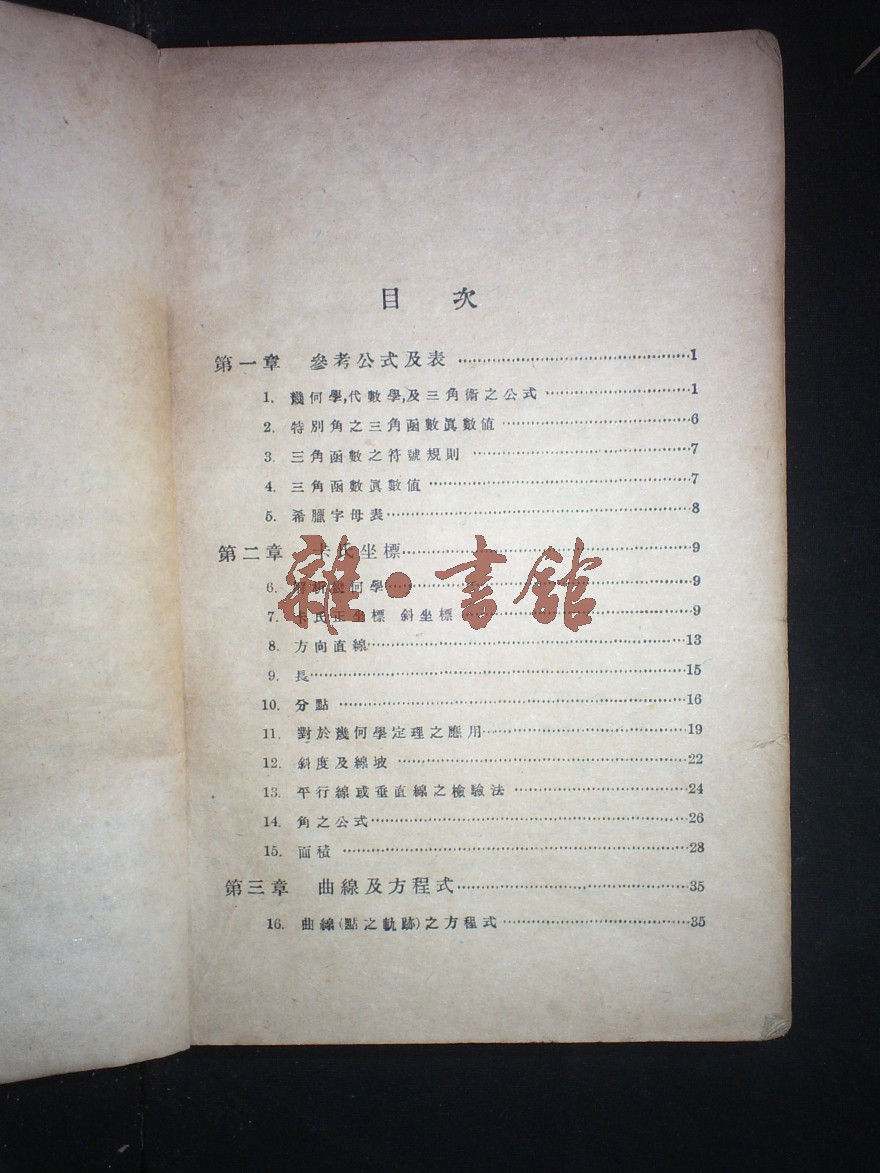 目 次
第一章 參考公式及表……1
1. 幾何學,代數學,及三角術之公式……1
2. 特別角之三角函數眞數値……6
3. 三角函數之符號規則……7
4. 三角函數眞數値……7
5. 希臘字母表……8
第二章 卡氏坐標……9
6. 解析幾何學……9
7. 卡氏正坐標 斜坐標……9
8. 方向直線……13
9. 長……15
10. 分點……16
11. 對於幾何學定理之應用……19
12. 斜度及線坡……22
13. 平行線或垂直線之檢驗法……24
14. 角之公式……26
15. 面積……28
第三章 曲線及方程式……35
16. 曲線(點之軌跡)之方程式……35
雜·書館